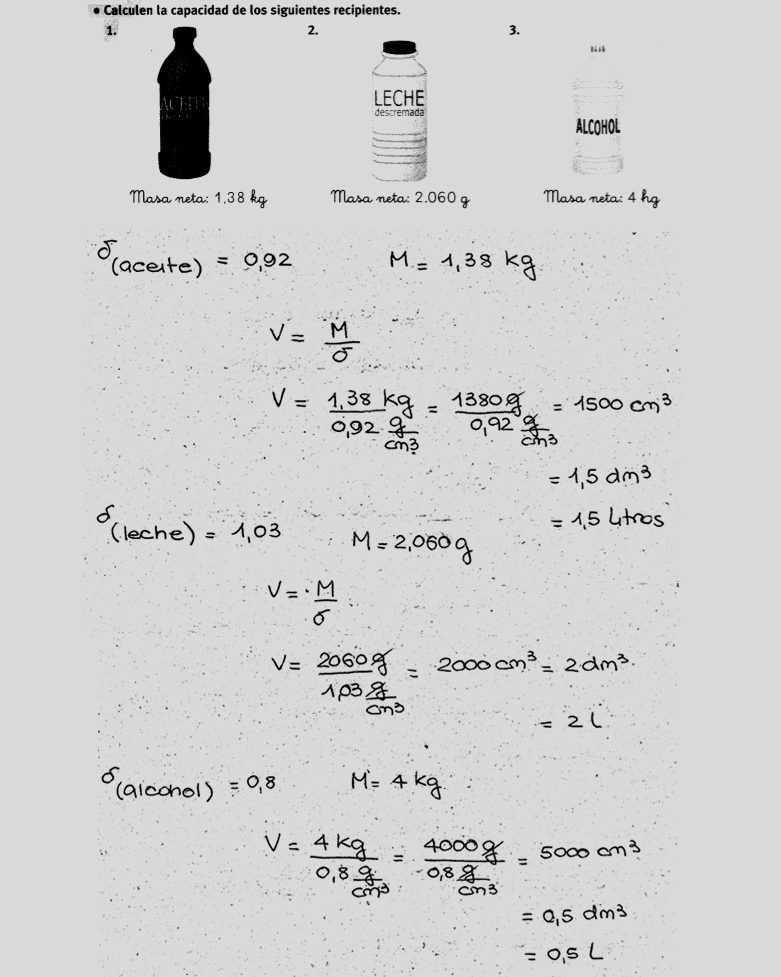 • Calculen la capacidad de los siguientes recipientes.
1. 2. 3.
ACEITE
LECHE
descremada
ALCOHOL
Masa neta: 1,38 kg Masa neta: 2.060 g Masa neta: 4 hg
δ(aceite) = 0,92 M = 1,38 kg
V = M/δ
V = 1,38 kg / 0,92 g/cm³ = 1380 g / 0,92 g/cm³ = 1500 cm³
= 1,5 dm³
= 1,5 Litros
δ(leche) = 1,03 M = 2,060 g
V = M/δ
V = 2060 g / 1,03 g/cm³ = 2000 cm³ = 2 dm³.
= 2 L
δ(alcohol) = 0,8 M = 4 kg
V = 4 kg / 0,8 g/cm³ = 4000 g / 0,8 g/cm³ = 5000 cm³
= 0,5 dm³
= 0,5 L